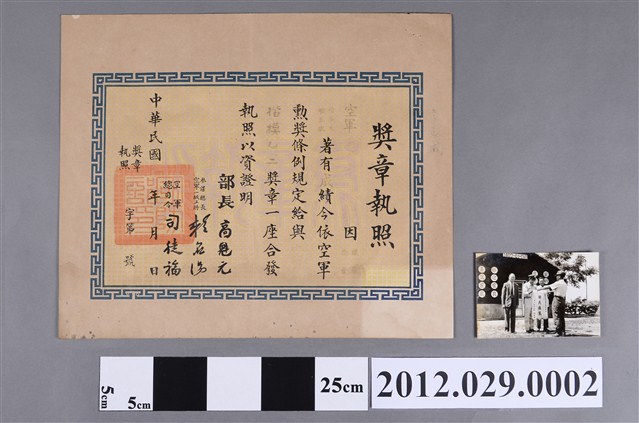 獎章執照
空軍
因
著有　績今依空軍
勲獎條例規定給與
二獎章一座合發
執照以資證明
部長高魁元
參謀總長
空軍一級上將
賴名湯
空軍
總司令
司徒福
中華民國　年　月　日
獎章
執照
字第　號
5cm
5cm
25cm
2012.029.0002